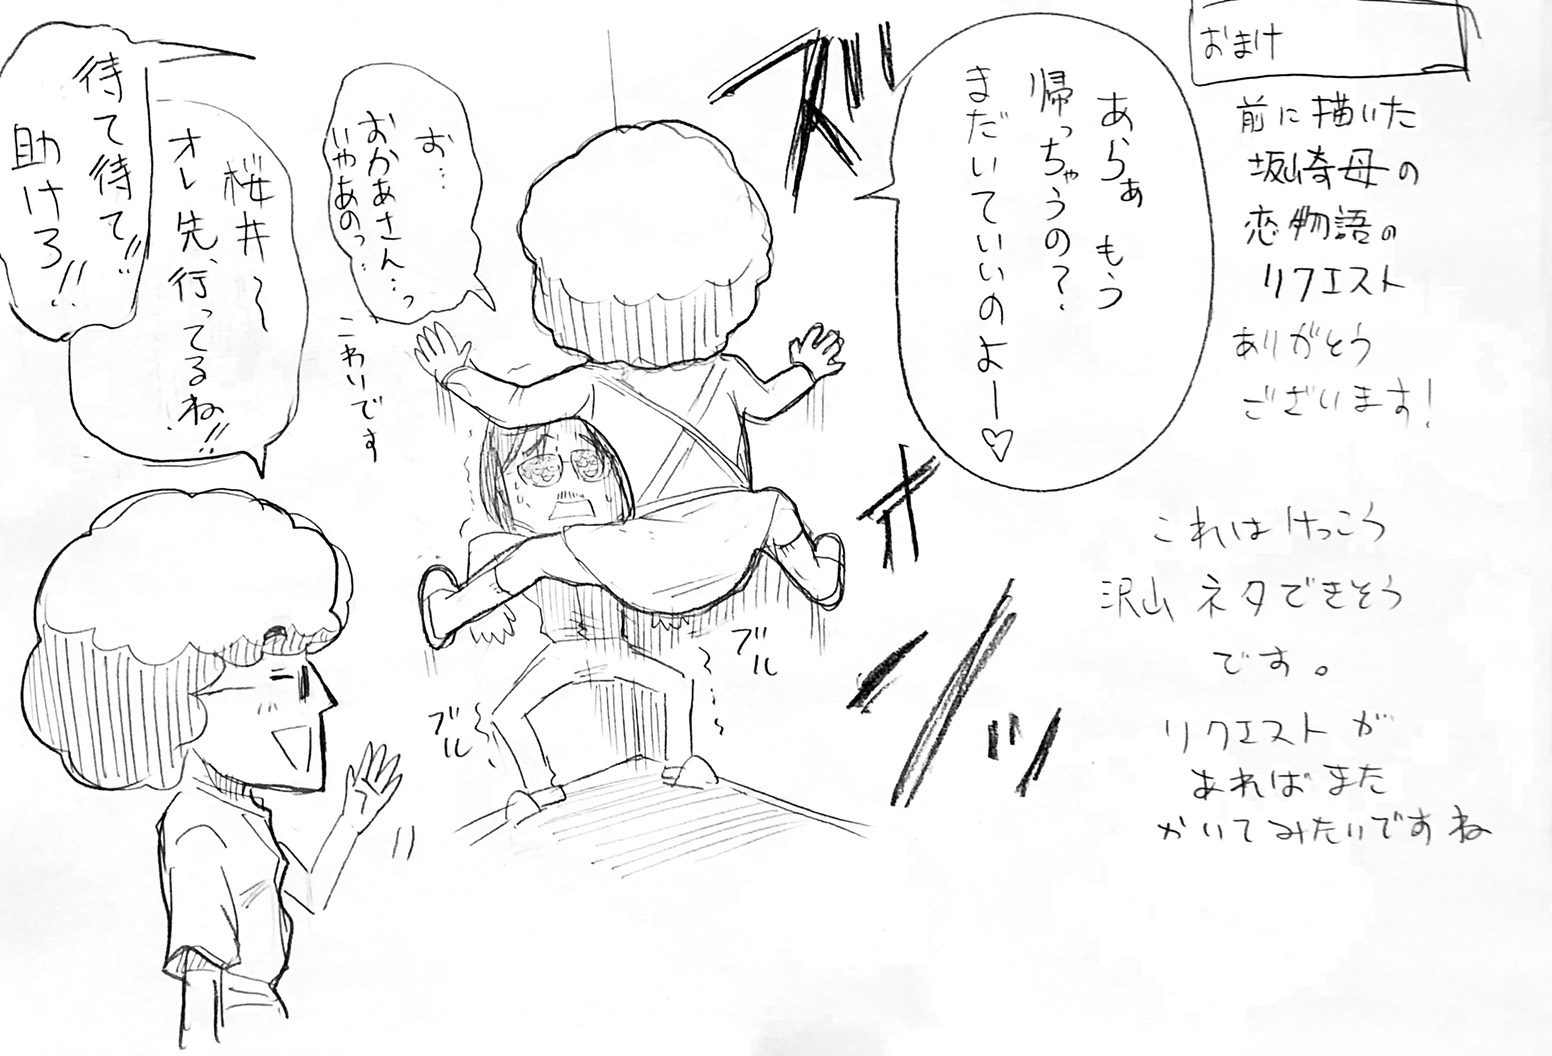 おまけ
前に描いた
坂崎母の
恋物語の
リクエスト
ありがとう
ございます!
これはけっこう
沢山ネタできそう
です。
リクエストが
あればまた
かいてみたいですね
あらぁ もう
帰っちゃうの?
まだいていいのよー♡
お…
おかあさん…っ
いやあのっ…
こわいです
ブル
ブル
桜井~
オレ先、行ってるね!!
待て待て!!
助けろ!!